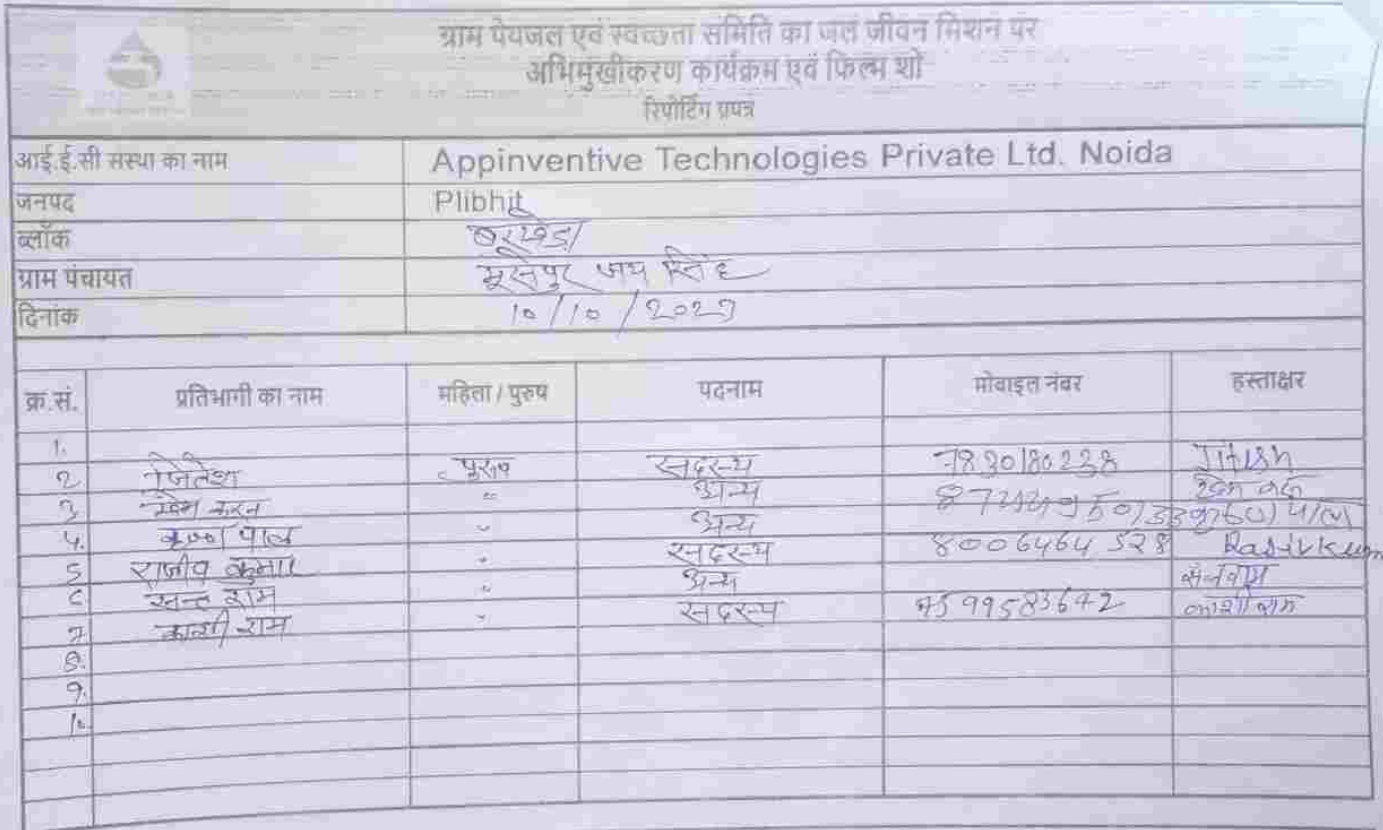 ग्राम पेयजल एवं स्वच्छता समिति का जल जीवन मिशन पर
अभिमुखीकरण कार्यक्रम एवं फिल्म शो
रिपोर्टिंग प्रपत्र
आई.ई.सी संस्था का नाम Appinventive Technologies Private Ltd. Noida
जनपद Plibhit
ब्लॉक बरखेडा
ग्राम पंचायत मूसेपुर जय सिंह
दिनांक 10/10/2023
क्र.सं. प्रतिभागी का नाम महिला / पुरुष पदनाम मोबाइल नंबर हस्ताक्षर
1.
2 जितेश पुरुष सदस्य 7830180238 Jitesh
3 खेम करन " अन्य
4. कृष्ण पाल " अन्य पाल
5 राजीव कुमार " सदस्य 8006464528 Rajivkum
6 सन्त राम " अन्य
7 काशी राम " सदस्य 7599583642 काशीराम
8.
9.
10